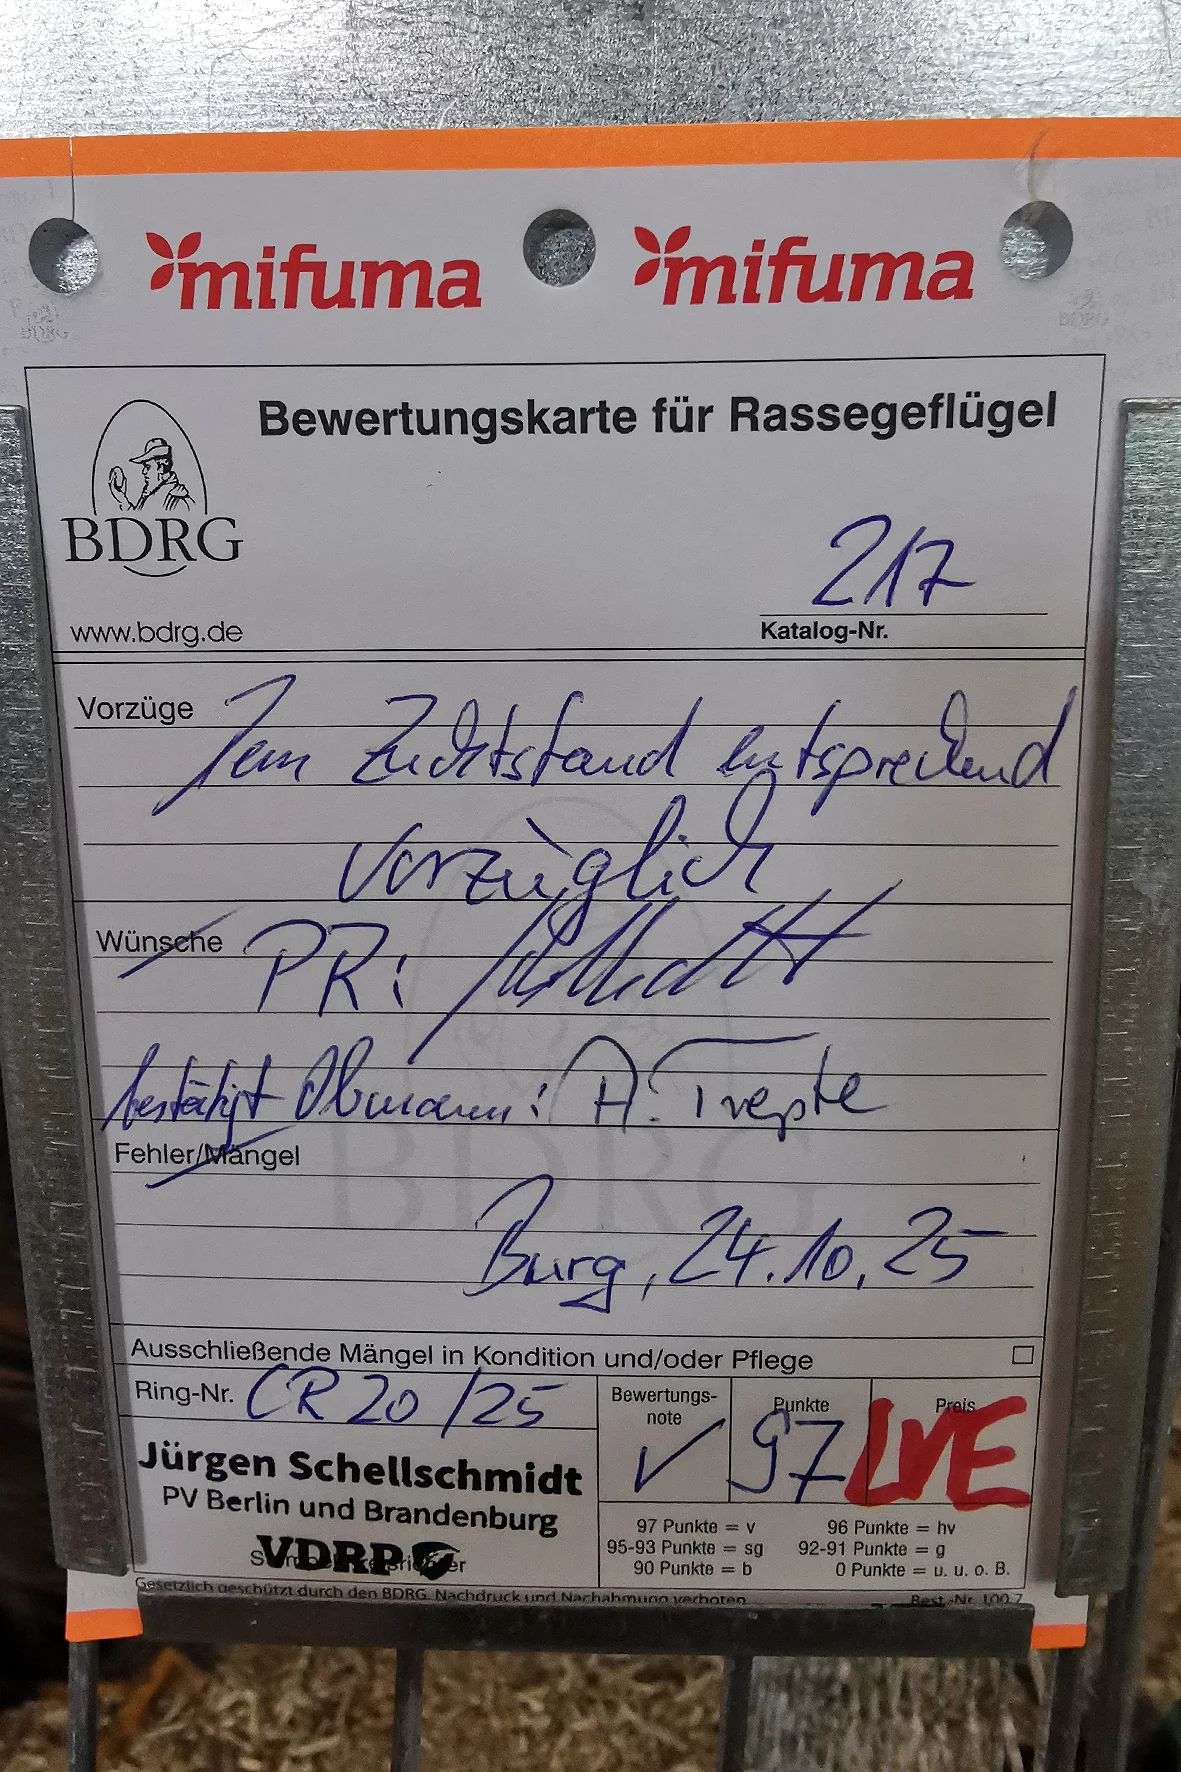 mifuma mifuma
Bewertungskarte für Rassegeflügel
BDRG
217
www.bdrg.de
Katalog-Nr.
Vorzüge Dem Zuchtstand entsprechend
vorzüglich
Wünsche PR:
bestätigt Obmann: A. Trepte
Fehler/Mängel
Burg, 24.10.25
Ausschließende Mängel in Kondition und/oder Pflege
Ring-Nr. CR 20/25
Bewertungs-
note
Punkte
Preis
97 LVE
Jürgen Schellschmidt
PV Berlin und Brandenburg
VDRP
97 Punkte = v 96 Punkte = hv
95-93 Punkte = sg 92-91 Punkte = g
90 Punkte = b 0 Punkte = u. u. o. B.
Gesetzlich geschützt durch den BDRG. Nachdruck und Nachahmung verboten.
Best.-Nr. 100.7